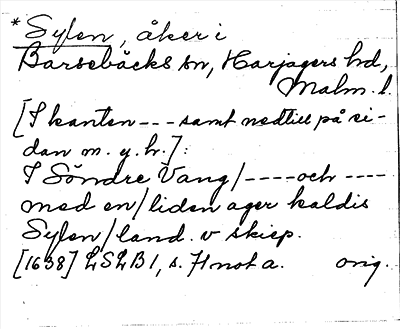 * Sylen, åker i
Barsebäcks sn, Harjagers hd,
Malm. l.
[I kanten --- samt nedtill på si-
dan m. y. h.]:
I Söndre Vang/ ---- och ----
med en/liden ager kaldis
Sylen/land. v skiep.
[1638] LSLB 1, s. 71 not a. orig.